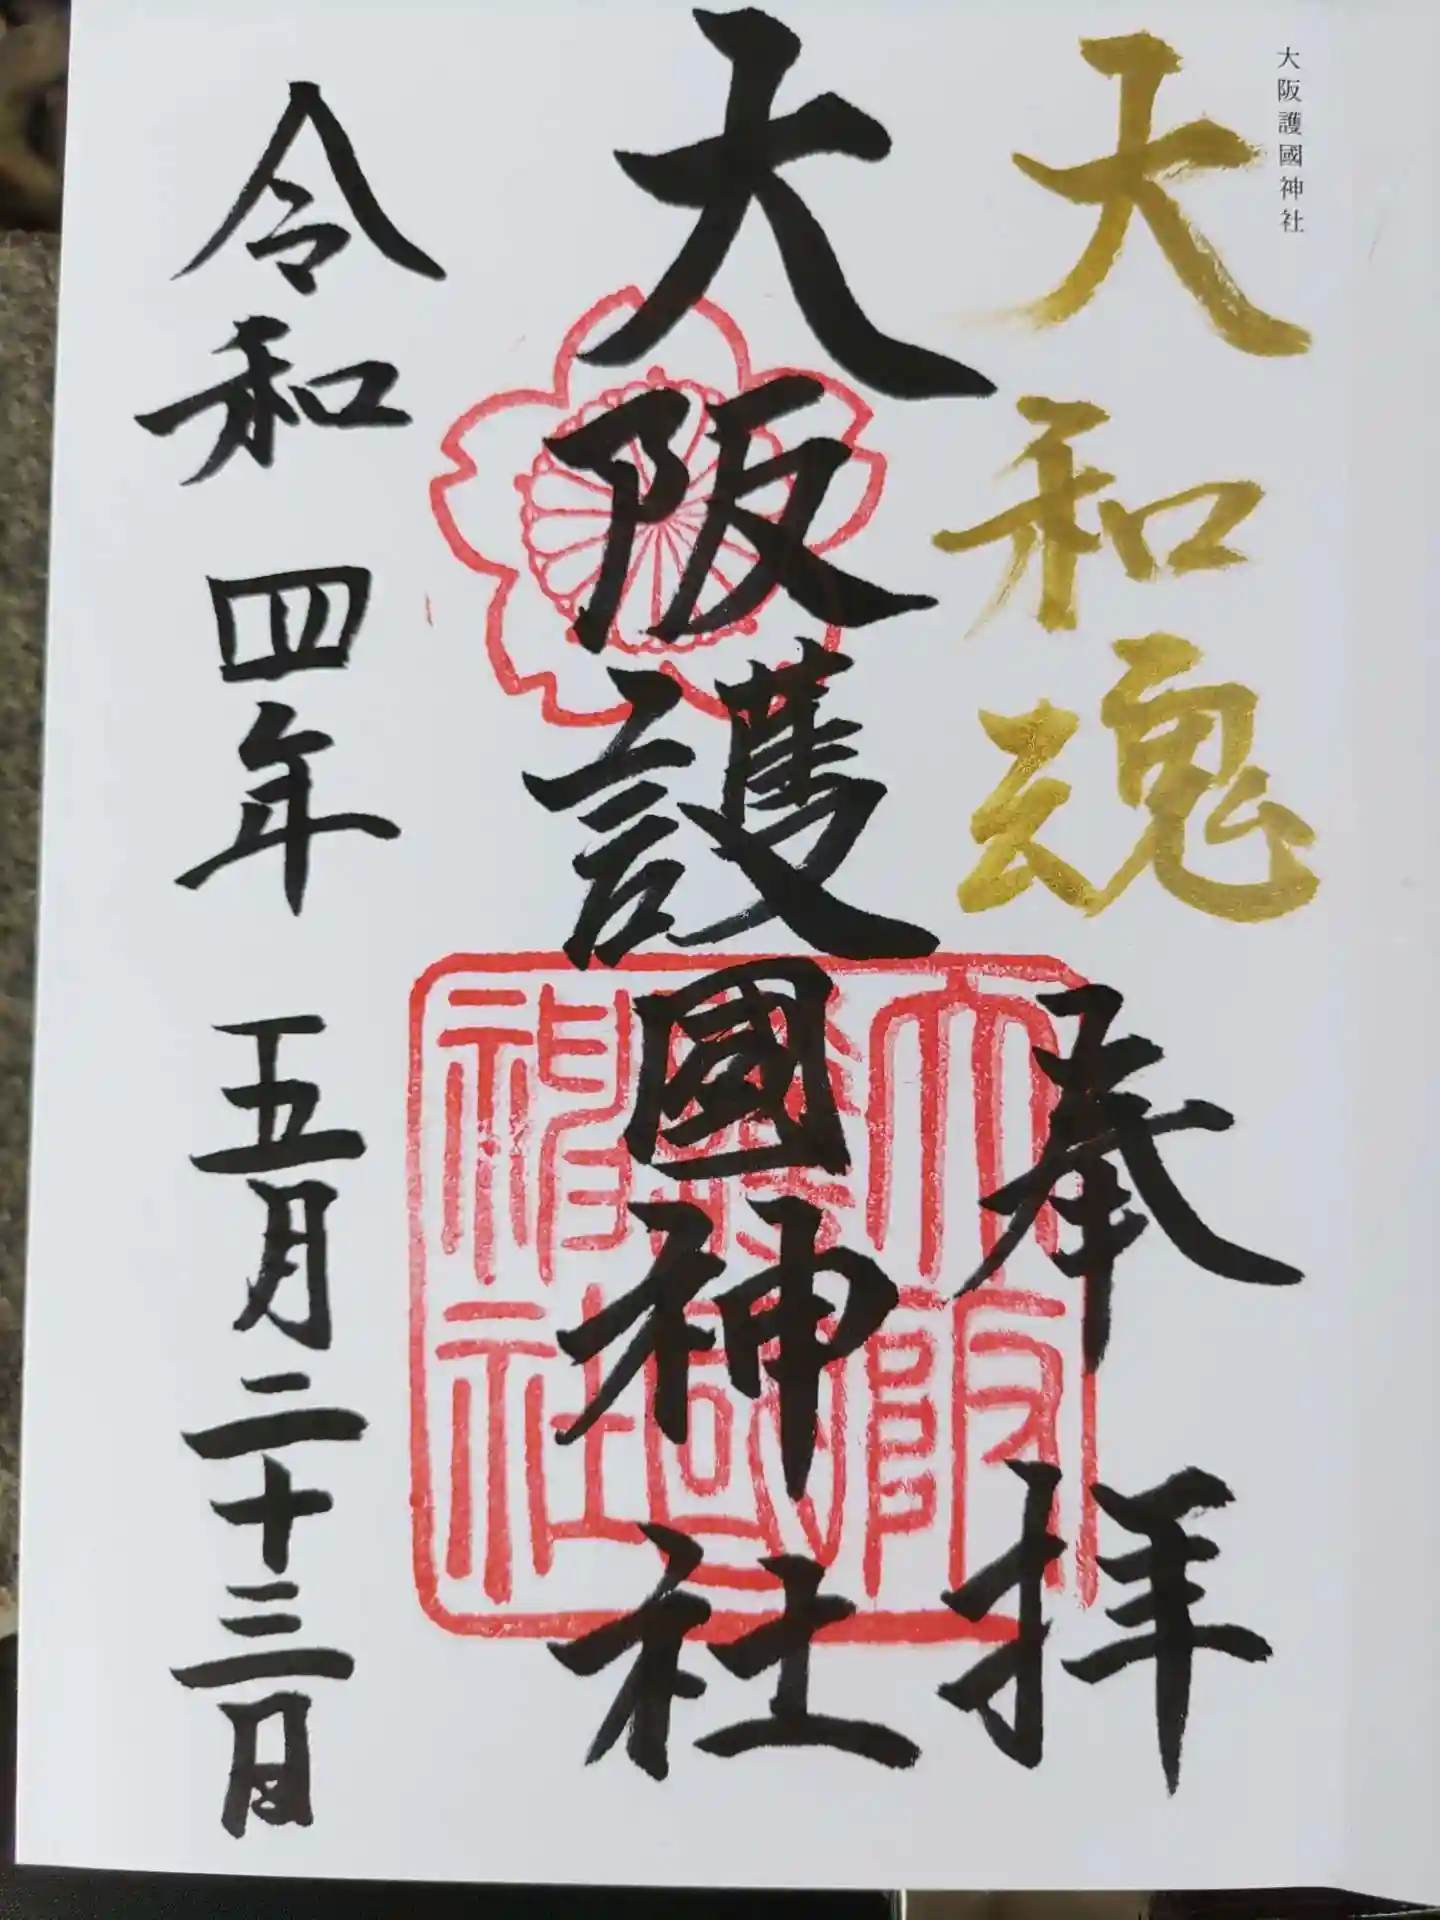 大阪護國神社
大和魂
奉拝
大阪護國神社
大阪
護國
神社
令和四年五月二十三日